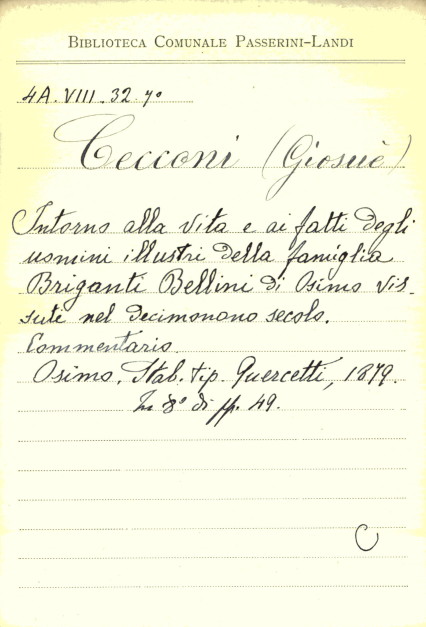 BIBLIOTECA COMUNALE PASSERINI-LANDI
4A.VIII.32.7º
Cecconi (Giosuè)
Intorno alla vita e ai fatti degli
uomini illustri della famiglia
Briganti Bellini di Osimo vis-
sute nel decimonono secolo.
Commentario.
Osimo, Stab. tip. Quercetti, 1879.
In 8º di pp. 49.
C